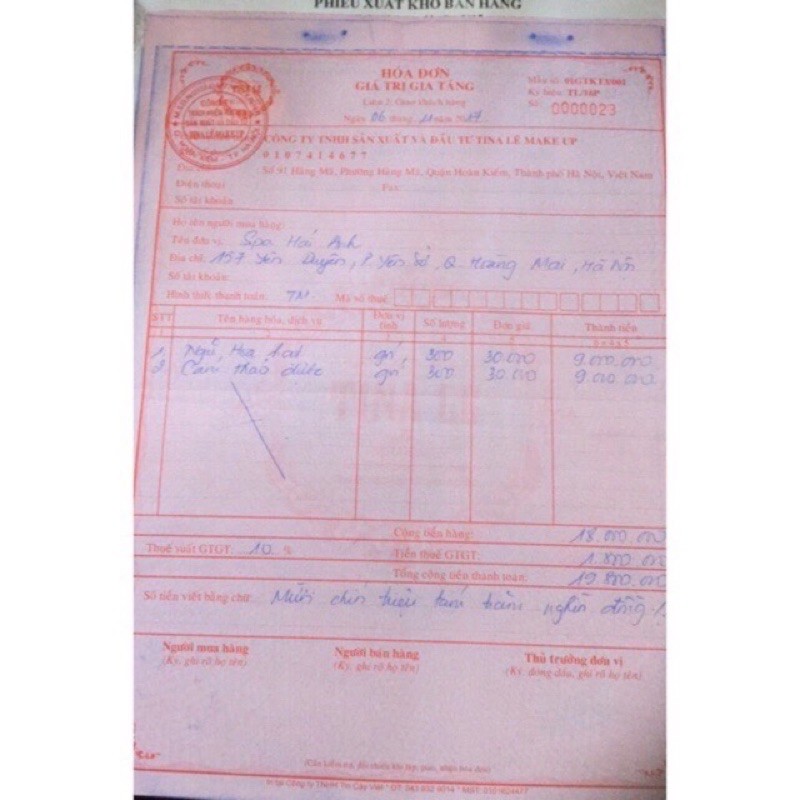 PHIẾU XUẤT KHO BÁN HÀNG
HÓA ĐƠN
GIÁ TRỊ GIA TĂNG
Liên 2: Giao khách hàng
Ngày 06 tháng 11 năm 2017
Mẫu số: 01GTKT3/001
Ký hiệu: TL/16P
Số: 0000023
CÔNG TY TNHH SẢN XUẤT VÀ ĐẦU TƯ TINA LÊ MAKE UP
0107414677
Địa chỉ: Số 91 Hàng Mã, Phường Hàng Mã, Quận Hoàn Kiếm, Thành phố Hà Nội, Việt Nam
Điện thoại: Fax:
Số tài khoản:
Họ tên người mua hàng:
Tên đơn vị: Spa Hải Anh
Địa chỉ: 157 Yên Duyên, P. Yên Sở, Q. Hoàng Mai, Hà Nội
Số tài khoản:
Hình thức thanh toán: TM Mã số thuế:
STT Tên hàng hóa, dịch vụ Đơn vị tính Số lượng Đơn giá Thành tiền
1 2 3 4 5 6=4x5
1. Ngũ Hoa gói 300 30.000 9.000.000
2. Cam thảo dược gói 300 30.000 9.000.000
TINA LE
Cộng tiền hàng: 18.000.000
Thuế suất GTGT: 10 % Tiền thuế GTGT: 1.800.000
Tổng cộng tiền thanh toán: 19.800.000
Số tiền viết bằng chữ: Mười chín triệu tám trăm nghìn đồng ./.
Người mua hàng Người bán hàng Thủ trưởng đơn vị
(Ký, ghi rõ họ tên) (Ký, ghi rõ họ tên) (Ký, đóng dấu, ghi rõ họ tên)
(Cần kiểm tra, đối chiếu khi lập, giao, nhận hóa đơn)
In tại Công ty TNHH Tre Cây Việt * ĐT: 043 932